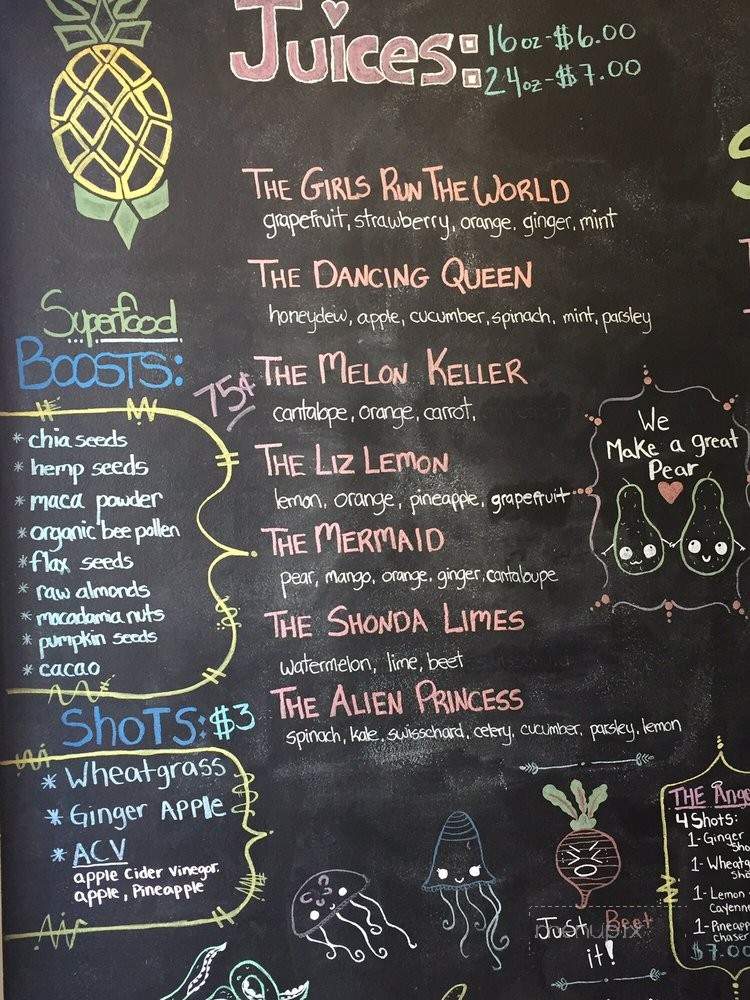 Juices:
16oz-$6.00
24oz-$7.00
THE GIRLS RUN THE WORLD
grapefruit, strawberry, orange, ginger, mint
THE DANCING QUEEN
honeydew, apple, cucumber, spinach, mint, parsley
THE MELON KELLER
cantalope, orange, carrot,
THE LIZ LEMON
lemon, orange, pineapple, grapefruit
THE MERMAID
pear, mango, orange, ginger, cantaloupe
THE SHONDA LIMES
watermelon, lime, beet
THE ALIEN PRINCESS
spinach, kale, swisschard, celery, cucumber, parsley, lemon
Superfood
BOOSTS:
75¢
* chia seeds
* hemp seeds
* maca powder
* organic bee pollen
* flax seeds
* raw almonds
* macadamia nuts
* pumpkin seeds
* cacao
SHOTS: $3
* Wheatgrass
* Ginger APPLe
* ACV
apple cider vinegar.
apple, Pineapple
We
Make a great
Pear
Just Beet
it!
menupix
THE Ange
4 Shots:
1-Ginger
Sho
1-Wheatg
Sho
1-Lemon
Cayenne
1-Pineap
chaser
$7.00